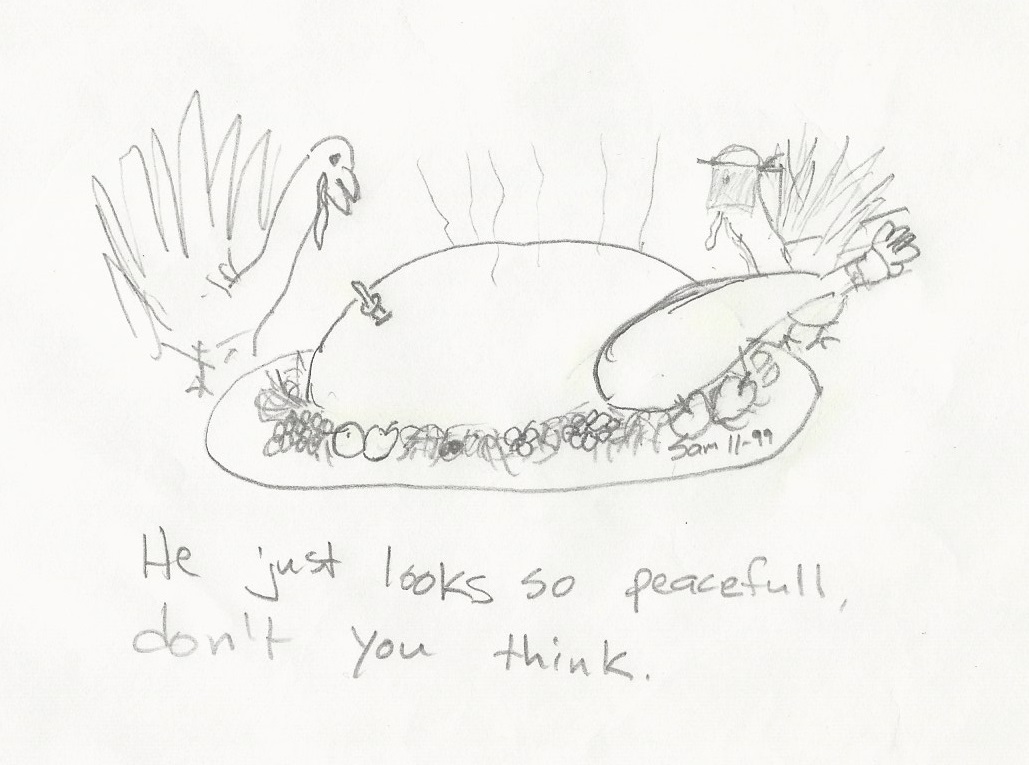 Sam 11-99
He just looks so peacefull,
don't you think.